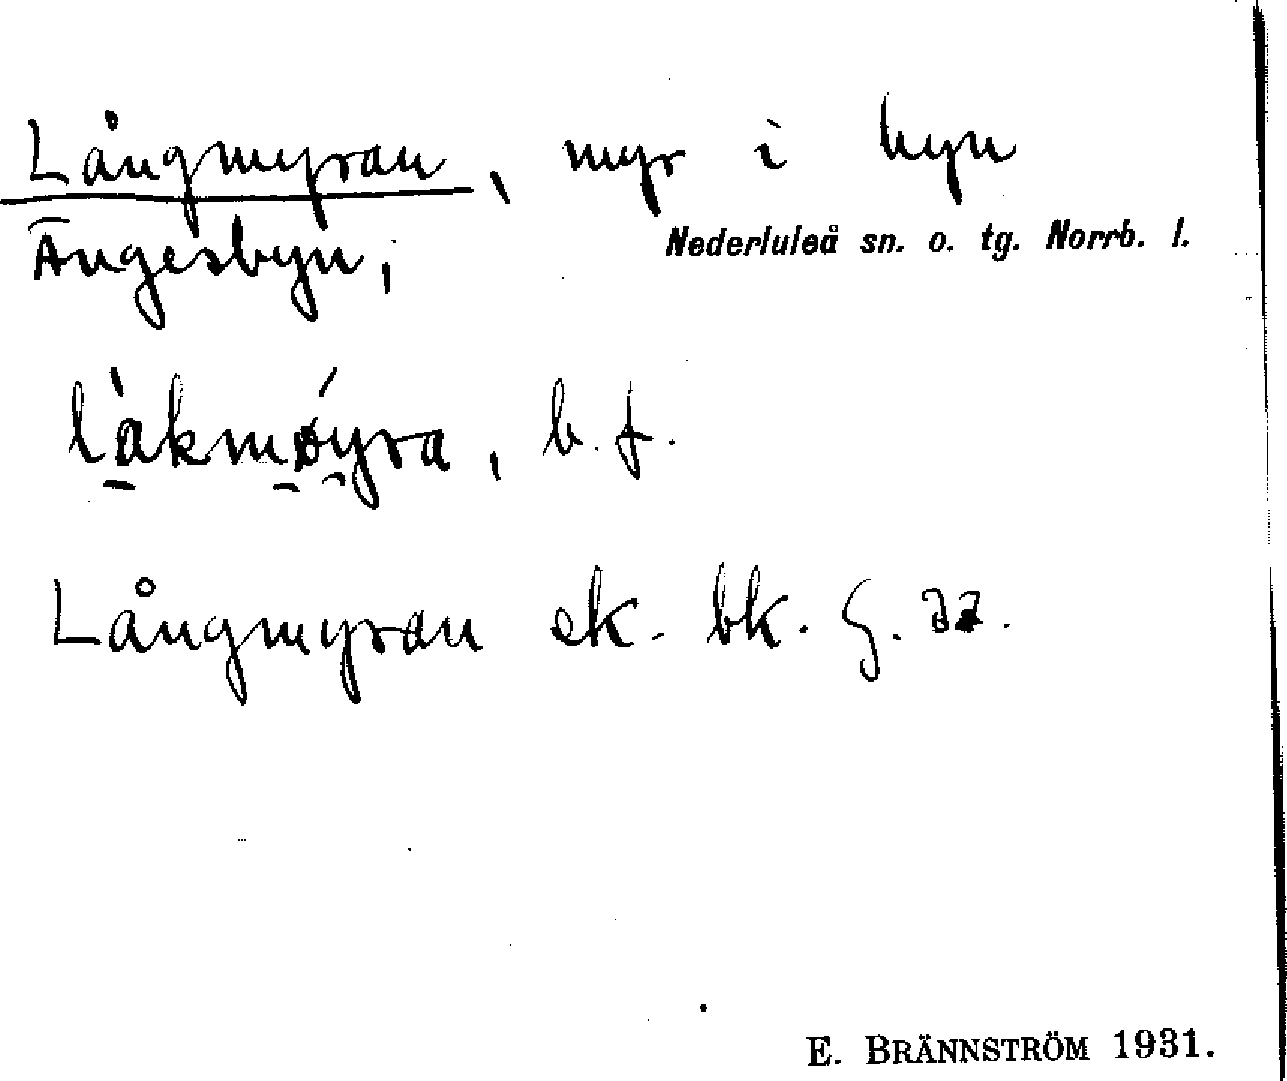 Långmyran, myr i byn
Ängesbyn, Nederluleå sn. o. tg. Norrb. l.
làkmǿyra, b. f.
Långmyran ek. bk. G. 22.
E. BRÄNNSTRÖM 1931.